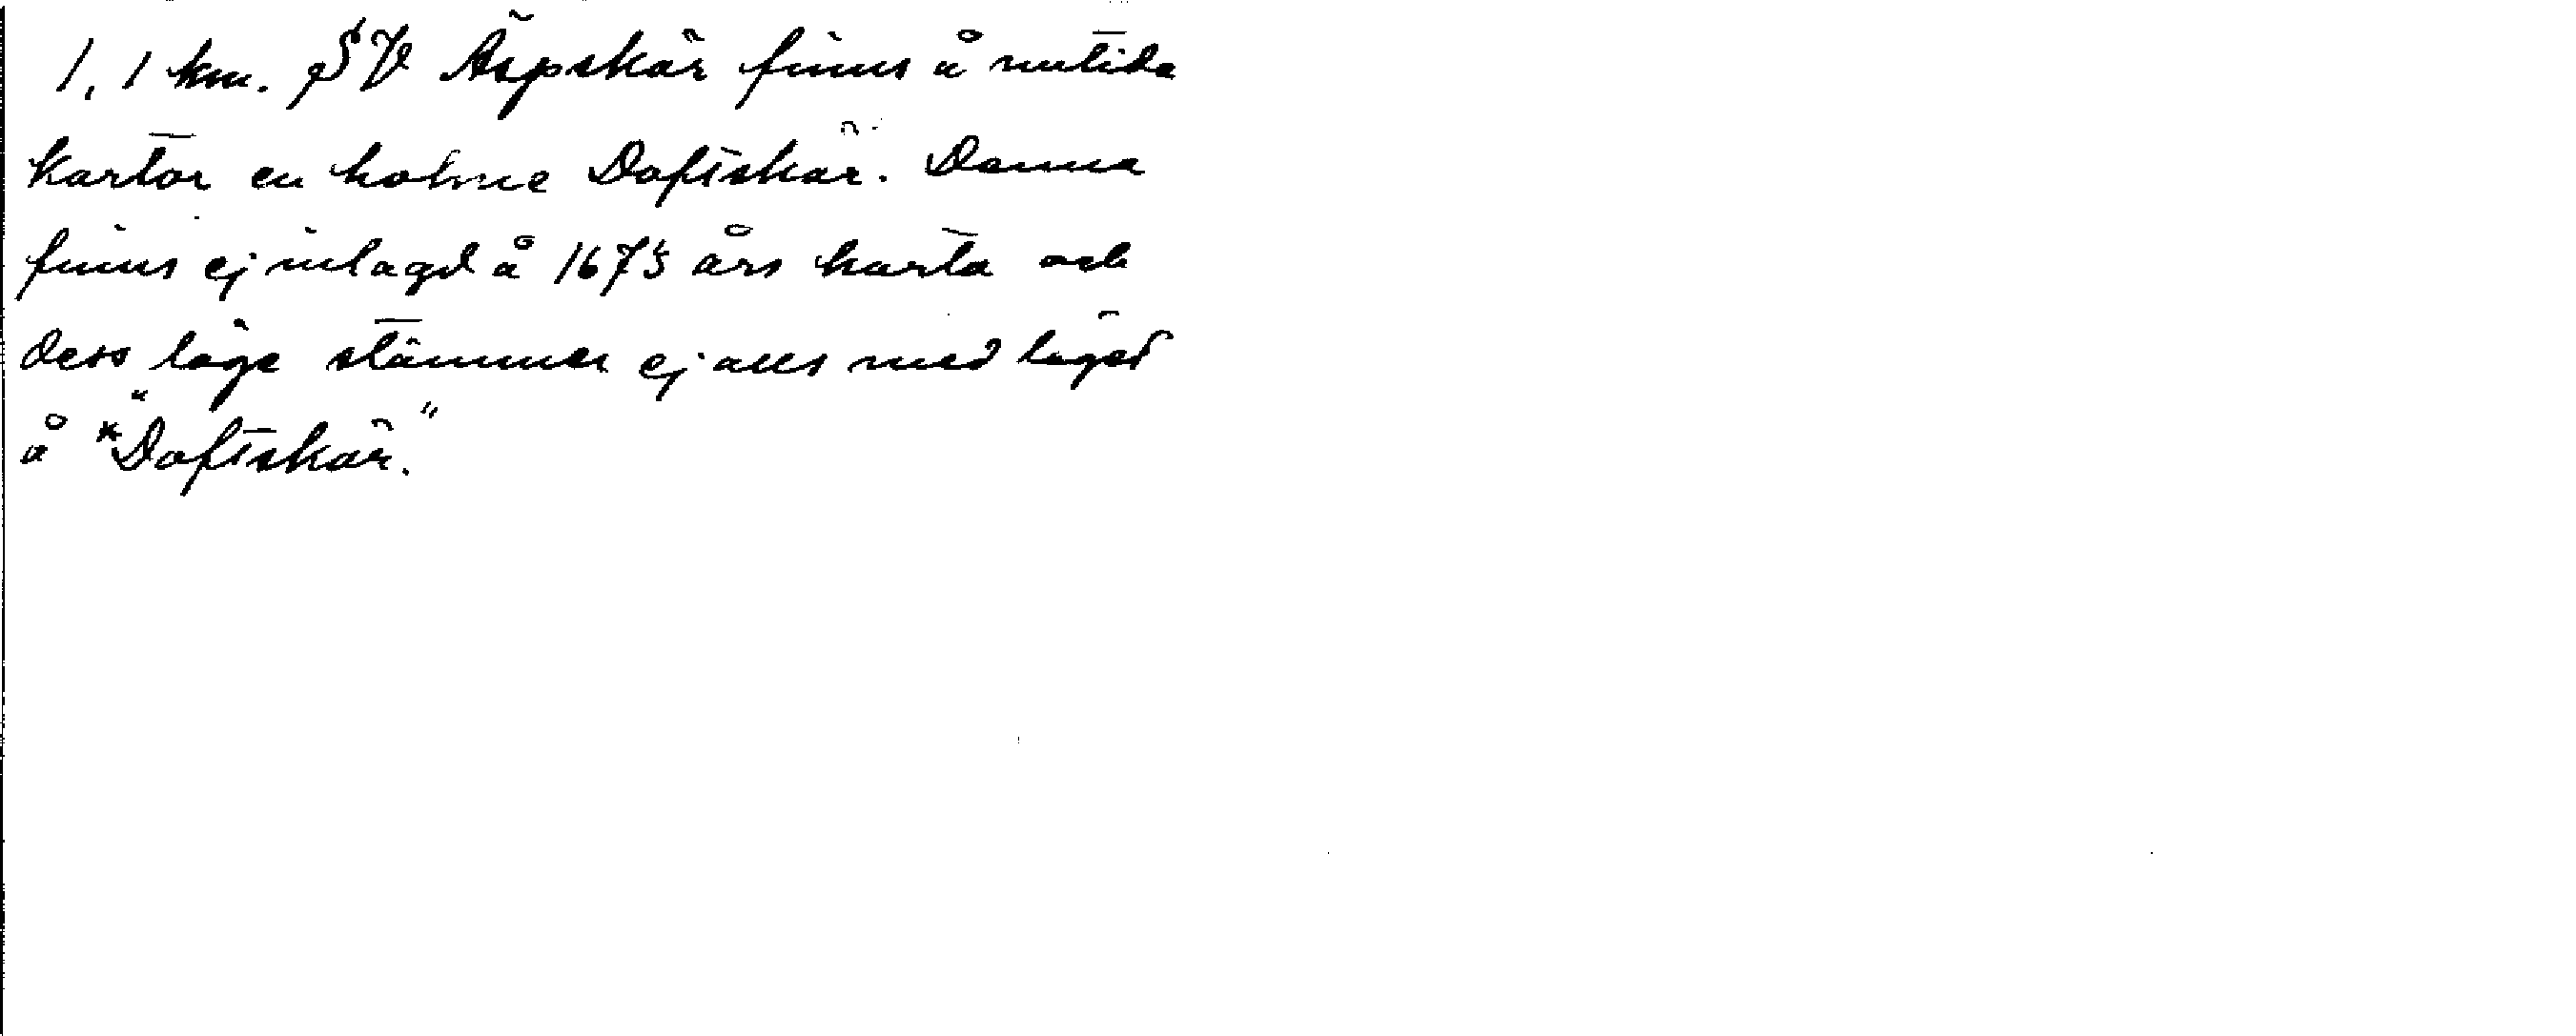 1,1 km. SV Äspskär finns å nutida
kartor en holme Daftskär. Denna
finns ej inlagd å 1675 års karta och
dess läge stämmer ej alls med läget
å *"Daftskär."